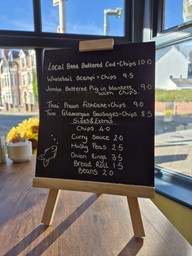 Local Beer Battered Cod + Chips 10.0
Wholetail Scampi + Chips 9.5
Jumbo Battered Pig in blankets 9.0
with Chips
Thai Prawn Fishcake + Chips 9.0
Two Glamorgan Sausages + Chips 8.5
Sides & Extras
Chips 4.0
Curry Sauce 2.0
Mushy Peas 2.5
Onion Rings 3.5
Bread Roll 1.5
Beans 2.0